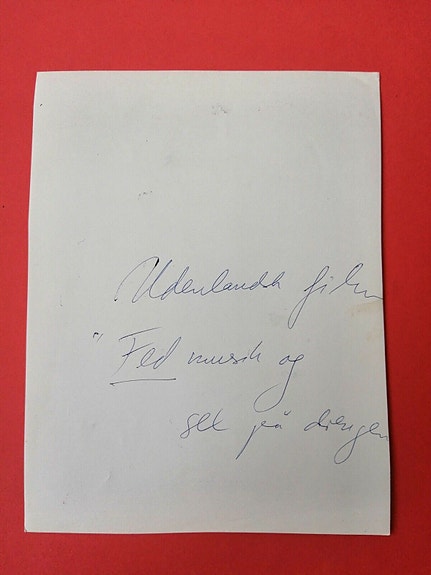 Udenlandsk film
" Fed musik og
på drengen